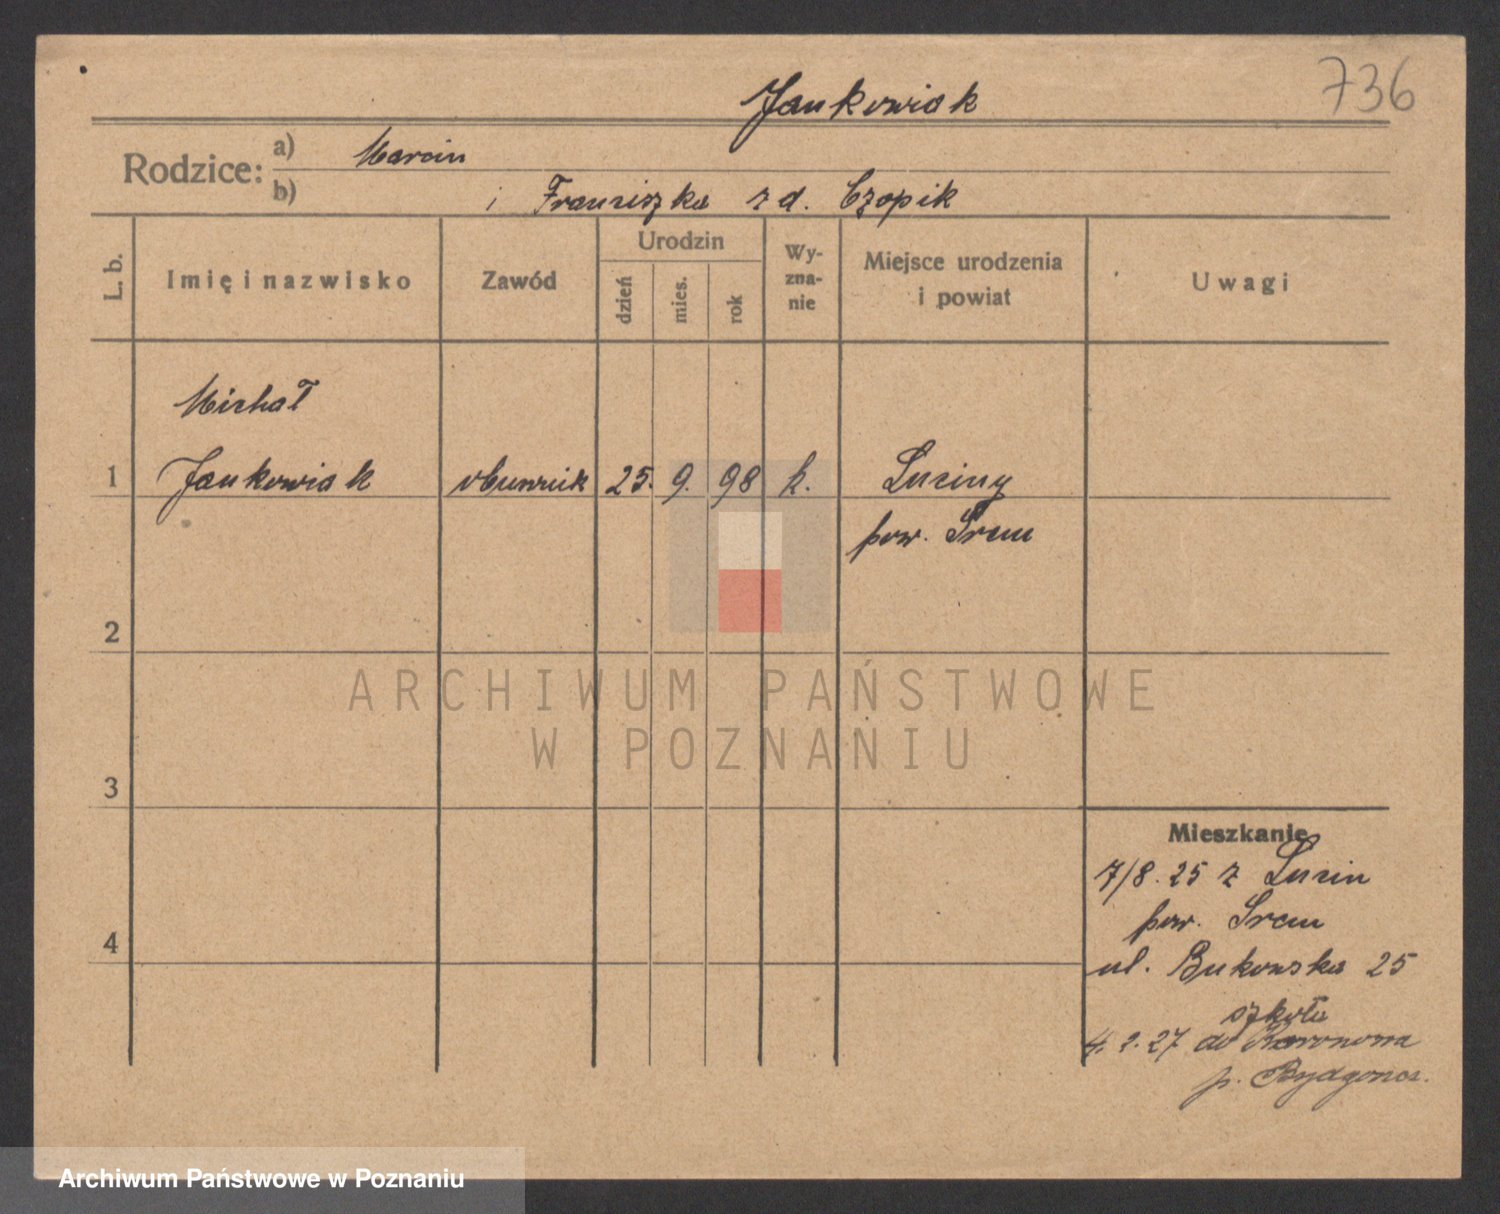 736
Jankowiak
Rodzice: a) Marcin
b) i Franciszka z d. Czopik
L. b. Imię i nazwisko Zawód Urodzin dzień mies. rok Wy-zna-nie Miejsce urodzenia i powiat Uwagi
Michał
1 Jankowiak obuwnik 25. 9. 98 k. Luciny
pow. Śrem
2
ARCHIWUM PAŃSTWOWE
W POZNANIU
3
Mieszkanie
7/8. 25 z Lucin
pow. Śrem
4
ul. Bukowska 25
szkoła
4. 2. 27 do Koronowa
p. Bydgoszcz.
Archiwum Państwowe w Poznaniu